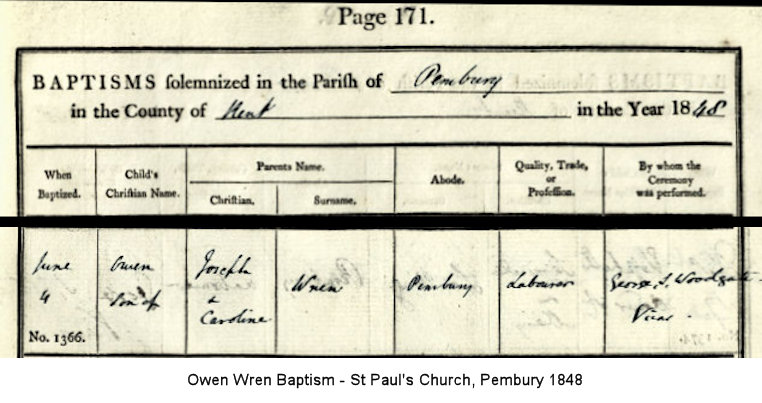 Page 171.
BAPTISMS ſolemnized in the Pariſh of Pembury
in the County of Kent in the Year 1848
When Baptized.
Child's Chriſtian Name.
Parents Name.
Chriſtian.
Surname.
Abode.
Quality, Trade, or Profeſſion.
By whom the Ceremony was performed.
June
4
No. 1366.
Owen
Son of
Joseph
&
Caroline
Wren
Pembury
Labourer
George S. Woodgate
Vicar.
Owen Wren Baptism - St Paul's Church, Pembury 1848